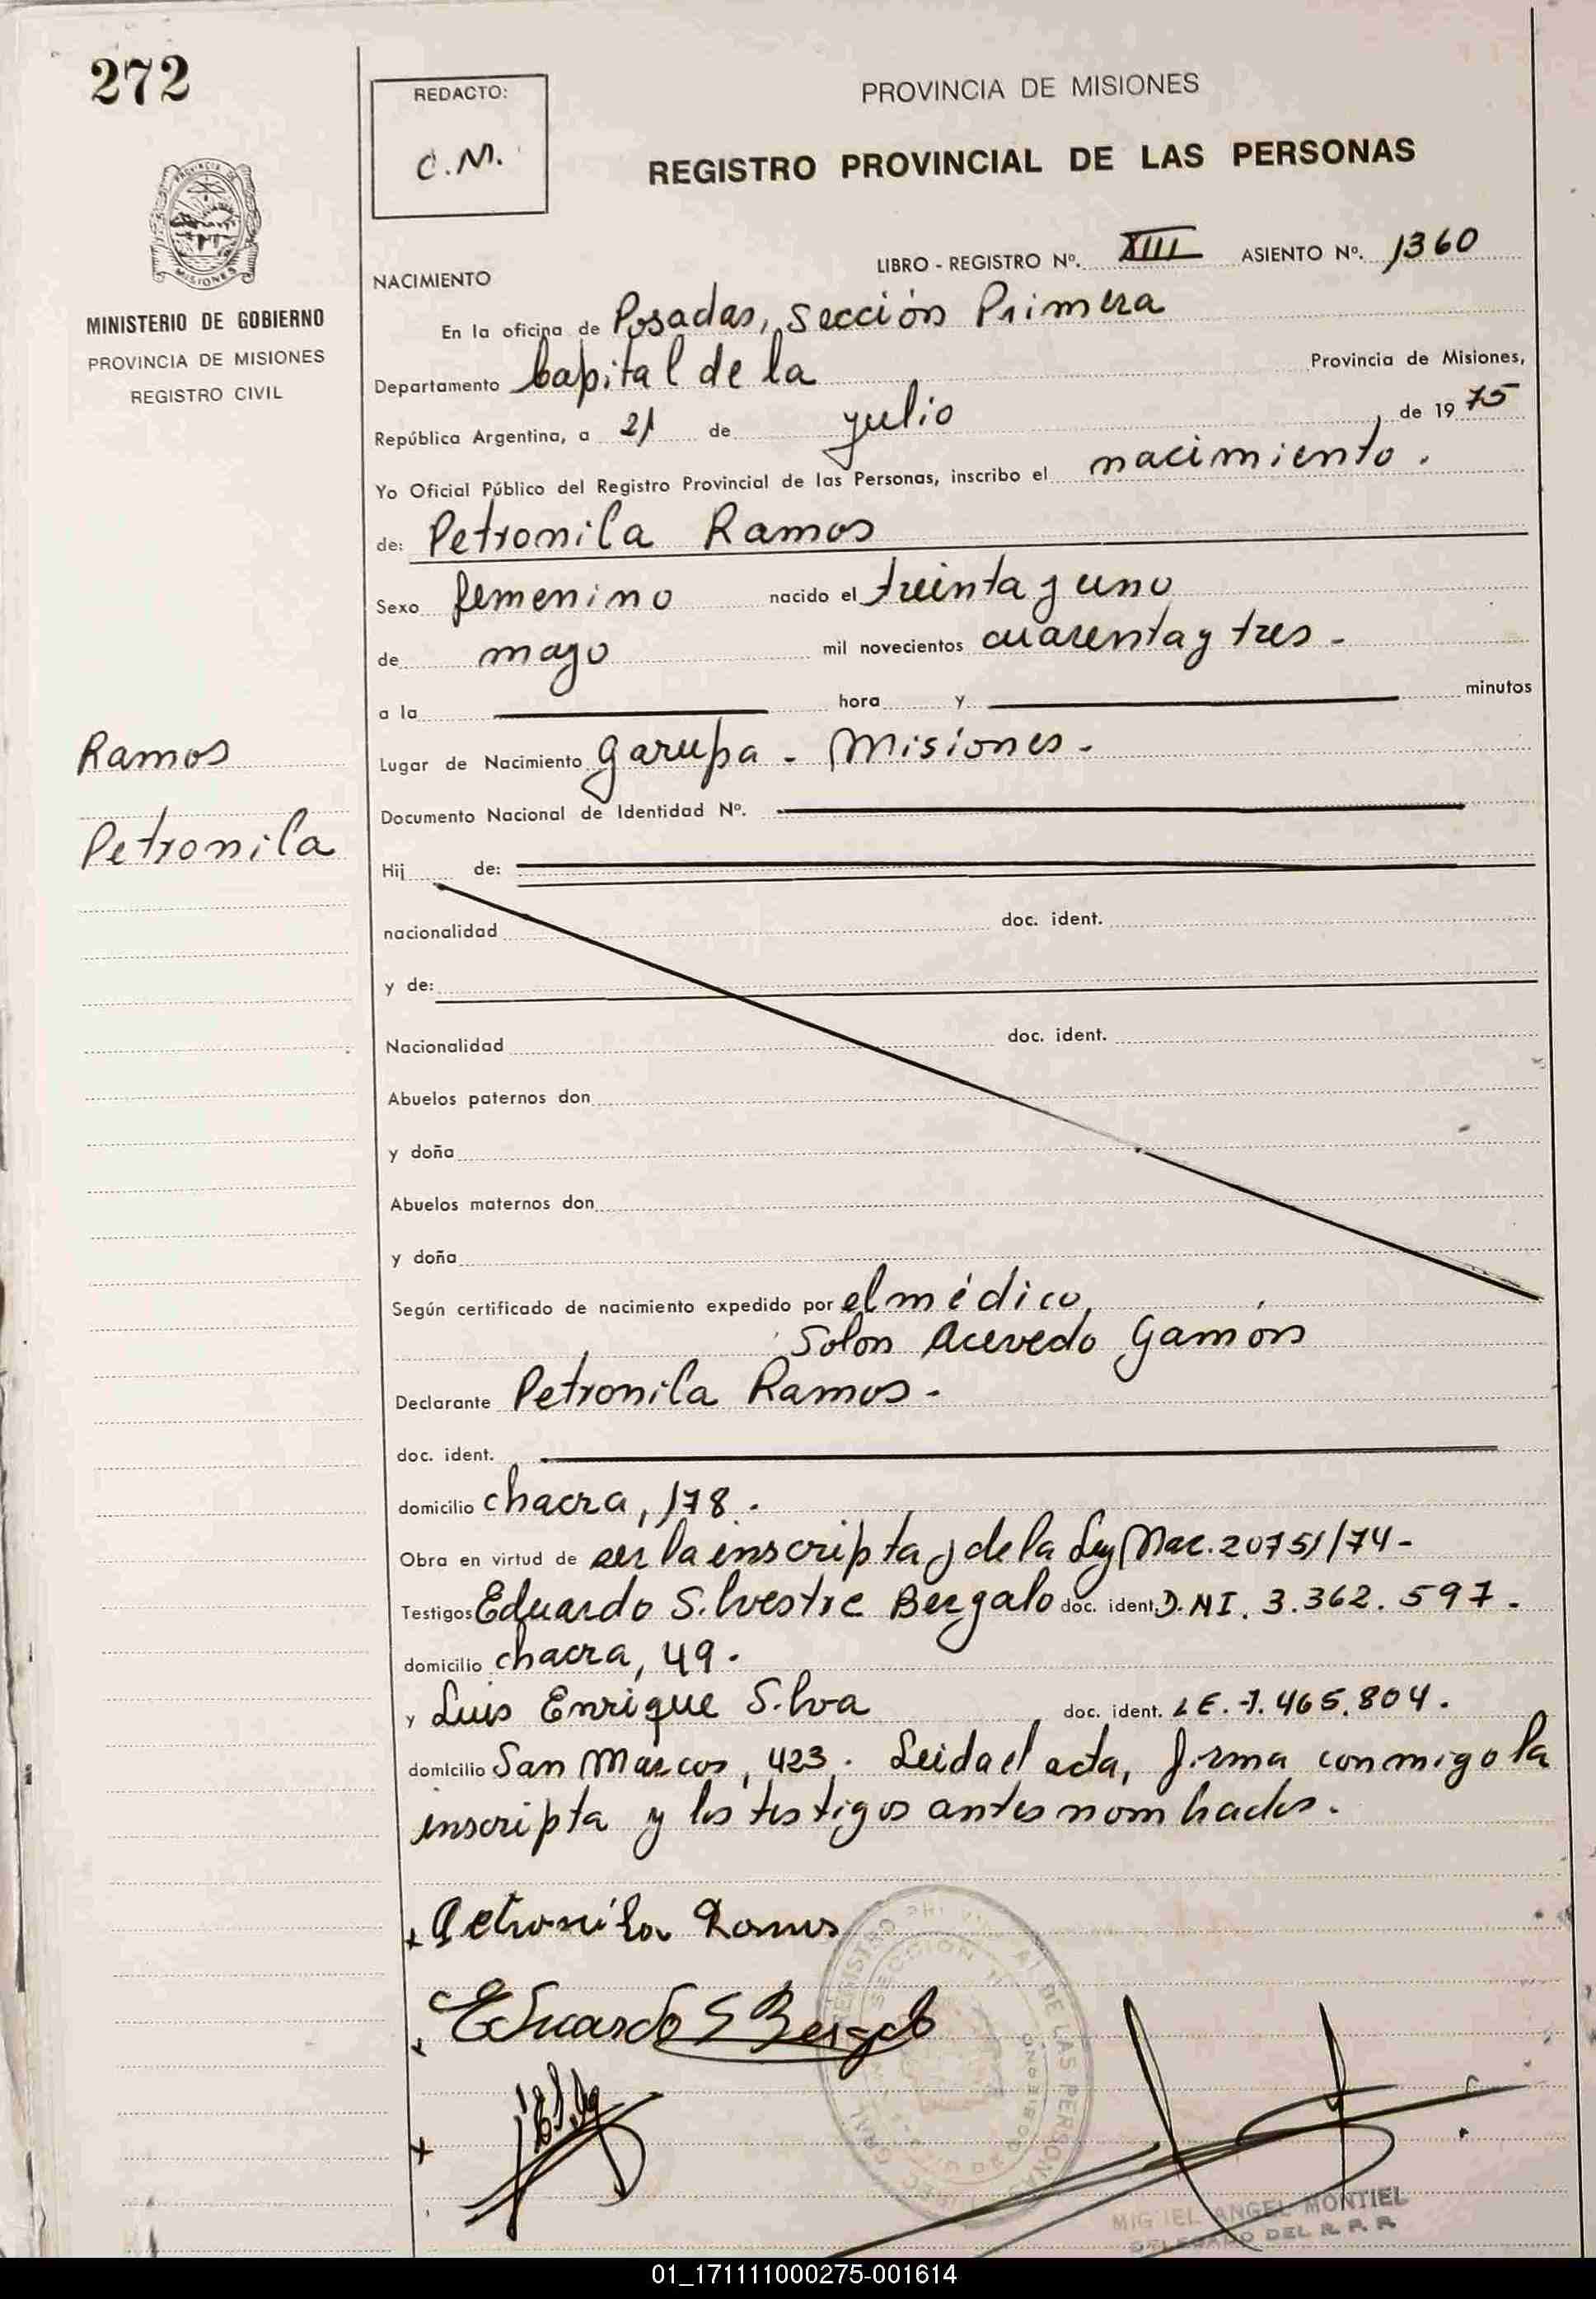 272
REDACTO:
C.M.
PROVINCIA DE MISIONES
REGISTRO PROVINCIAL DE LAS PERSONAS
LIBRO - REGISTRO Nº. XIII ASIENTO Nº. 1360
NACIMIENTO
MINISTERIO DE GOBIERNO
PROVINCIA DE MISIONES
REGISTRO CIVIL
En la oficina de Posadas, Sección Primera
Departamento Capital de la Provincia de Misiones,
República Argentina, a 21 de julio, de 1975
Yo Oficial Público del Registro Provincial de las Personas, inscribo el nacimiento.
de: Petronila Ramos
Sexo femenino nacido el treinta y uno
de mayo mil novecientos cuarenta y tres -
a la hora y minutos
Ramos
Petronila
Lugar de Nacimiento Garupa - Misiones -
Documento Nacional de Identidad Nº.
Hij de:
nacionalidad doc. ident.
y de:
Nacionalidad doc. ident.
Abuelos paternos don
y doña
Abuelos maternos don
y doña
Según certificado de nacimiento expedido por el médico,
Solon Acevedo Gamón
Declarante Petronila Ramos -
doc. ident.
domicilio chacra, 178.
Obra en virtud de ser la inscripta y de la Ley Nac. 20751/74 -
Testigos Eduardo Silvestre Bergalo doc. ident. D.N.I. 3.362.597 -
domicilio chacra, 49.
y Luis Enrique Silva, doc. ident. L.E. 7.465.804.
domicilio San Marcos, 423. Leida el acta, firma conmigo la
inscripta y los testigos antes nombrados.
Petronila Ramos
Eduardo S Bergalo
MIGUEL ANGEL MONTIEL
DELEGADO DEL R. P. P.
01_171111000275-001614